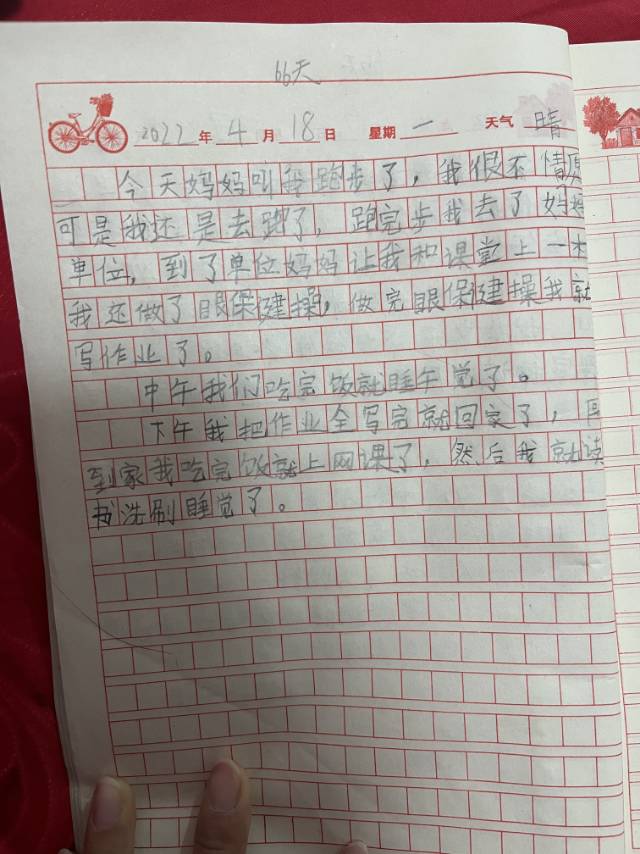 66天
2022年4月18日 星期一 天气晴
今天妈妈叫我跑步了，我很不情愿
可是我还是去跑了，跑完步我去了妈妈
单位，到了单位妈妈让我和课堂上一样
我还做了眼保健操，做完眼保健操我就
写作业了。
中午我们吃完饭就睡午觉了。
下午我把作业全写完就回家了，回
到家我吃完饭就上网课了，然后我就读
书洗刷睡觉了。